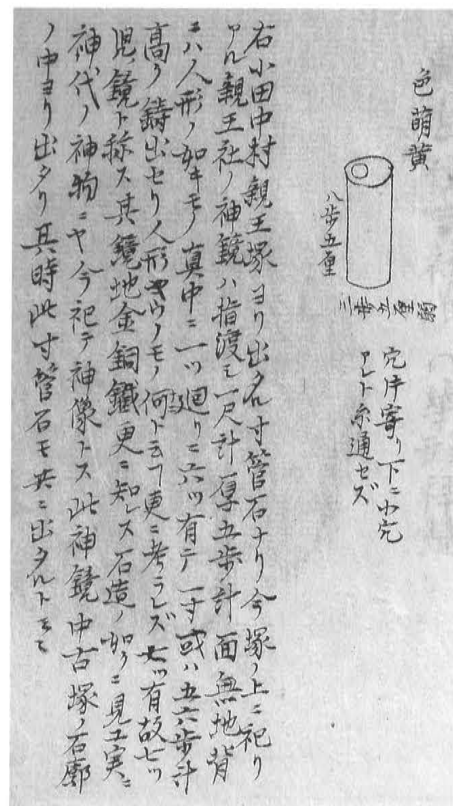 色萌黄
八歩五厘
三歩五厘弱
穴片寄り下ニ小穴
アレト糸通セズ
右小田中村親王塚ヨリ出タル寸管石ナリ今塚ノ上ニ祀り
アル親王社ノ神鏡ハ指渡シ一尺計厚五歩計面無地背
ニハ人形ノ如キモノ真中ニ一ツ廻リニ六ツ有テ一寸或ハ五六歩計
高ク鋳出セリ人形ヤウノモノ何ト云フ更ニ考ラレズ七ツ有故七ツ
児ノ鏡ト称ス其鏡地金銅鐵更ニ知レス石造ノ如クニ見エ実ニ
神代ノ神物ニヤ今祀テ神像トス此神鏡中古塚ノ石廓
ノ中ヨリ出タリ其時此寸管石モ共ニ出タルト云々